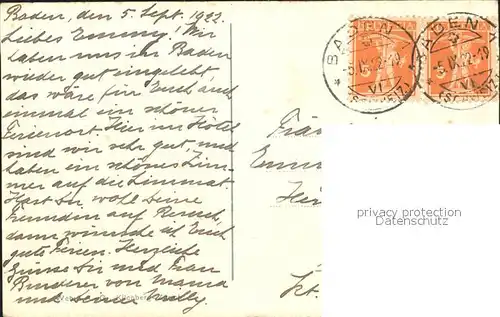 Baden, den 5. Sept. 1922.
Liebes Emmy! Wir
haben uns in Baden
wieder gut eingelebt
das wäre für Euch auch
einmal ein schöner
Ferienort. Hier im Hotel
sind wir sehr gut, und
haben ein schönes Zim-
mer auf die Limmat
Hast Du wohl Deine
Freundin auf Besuch,
dann wünsche ich Euch
gute Ferien. Herzliche
Grüsse Dir und Frau
von Mama
und Deiner Nelly.
BADEN
5.IX.22-20
VI
(SCHWEIZ)
BADEN
5.IX.22-20
VI
(SCHWEIZ)
HELVETIA
Fräu
Emm
privacy protection
www.ansichtskartenversand.com
Kt.
Kilchberg